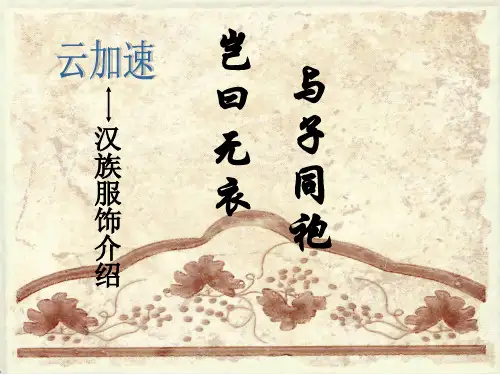 云加速
汉族服饰介绍
岂曰无衣
与子同袍